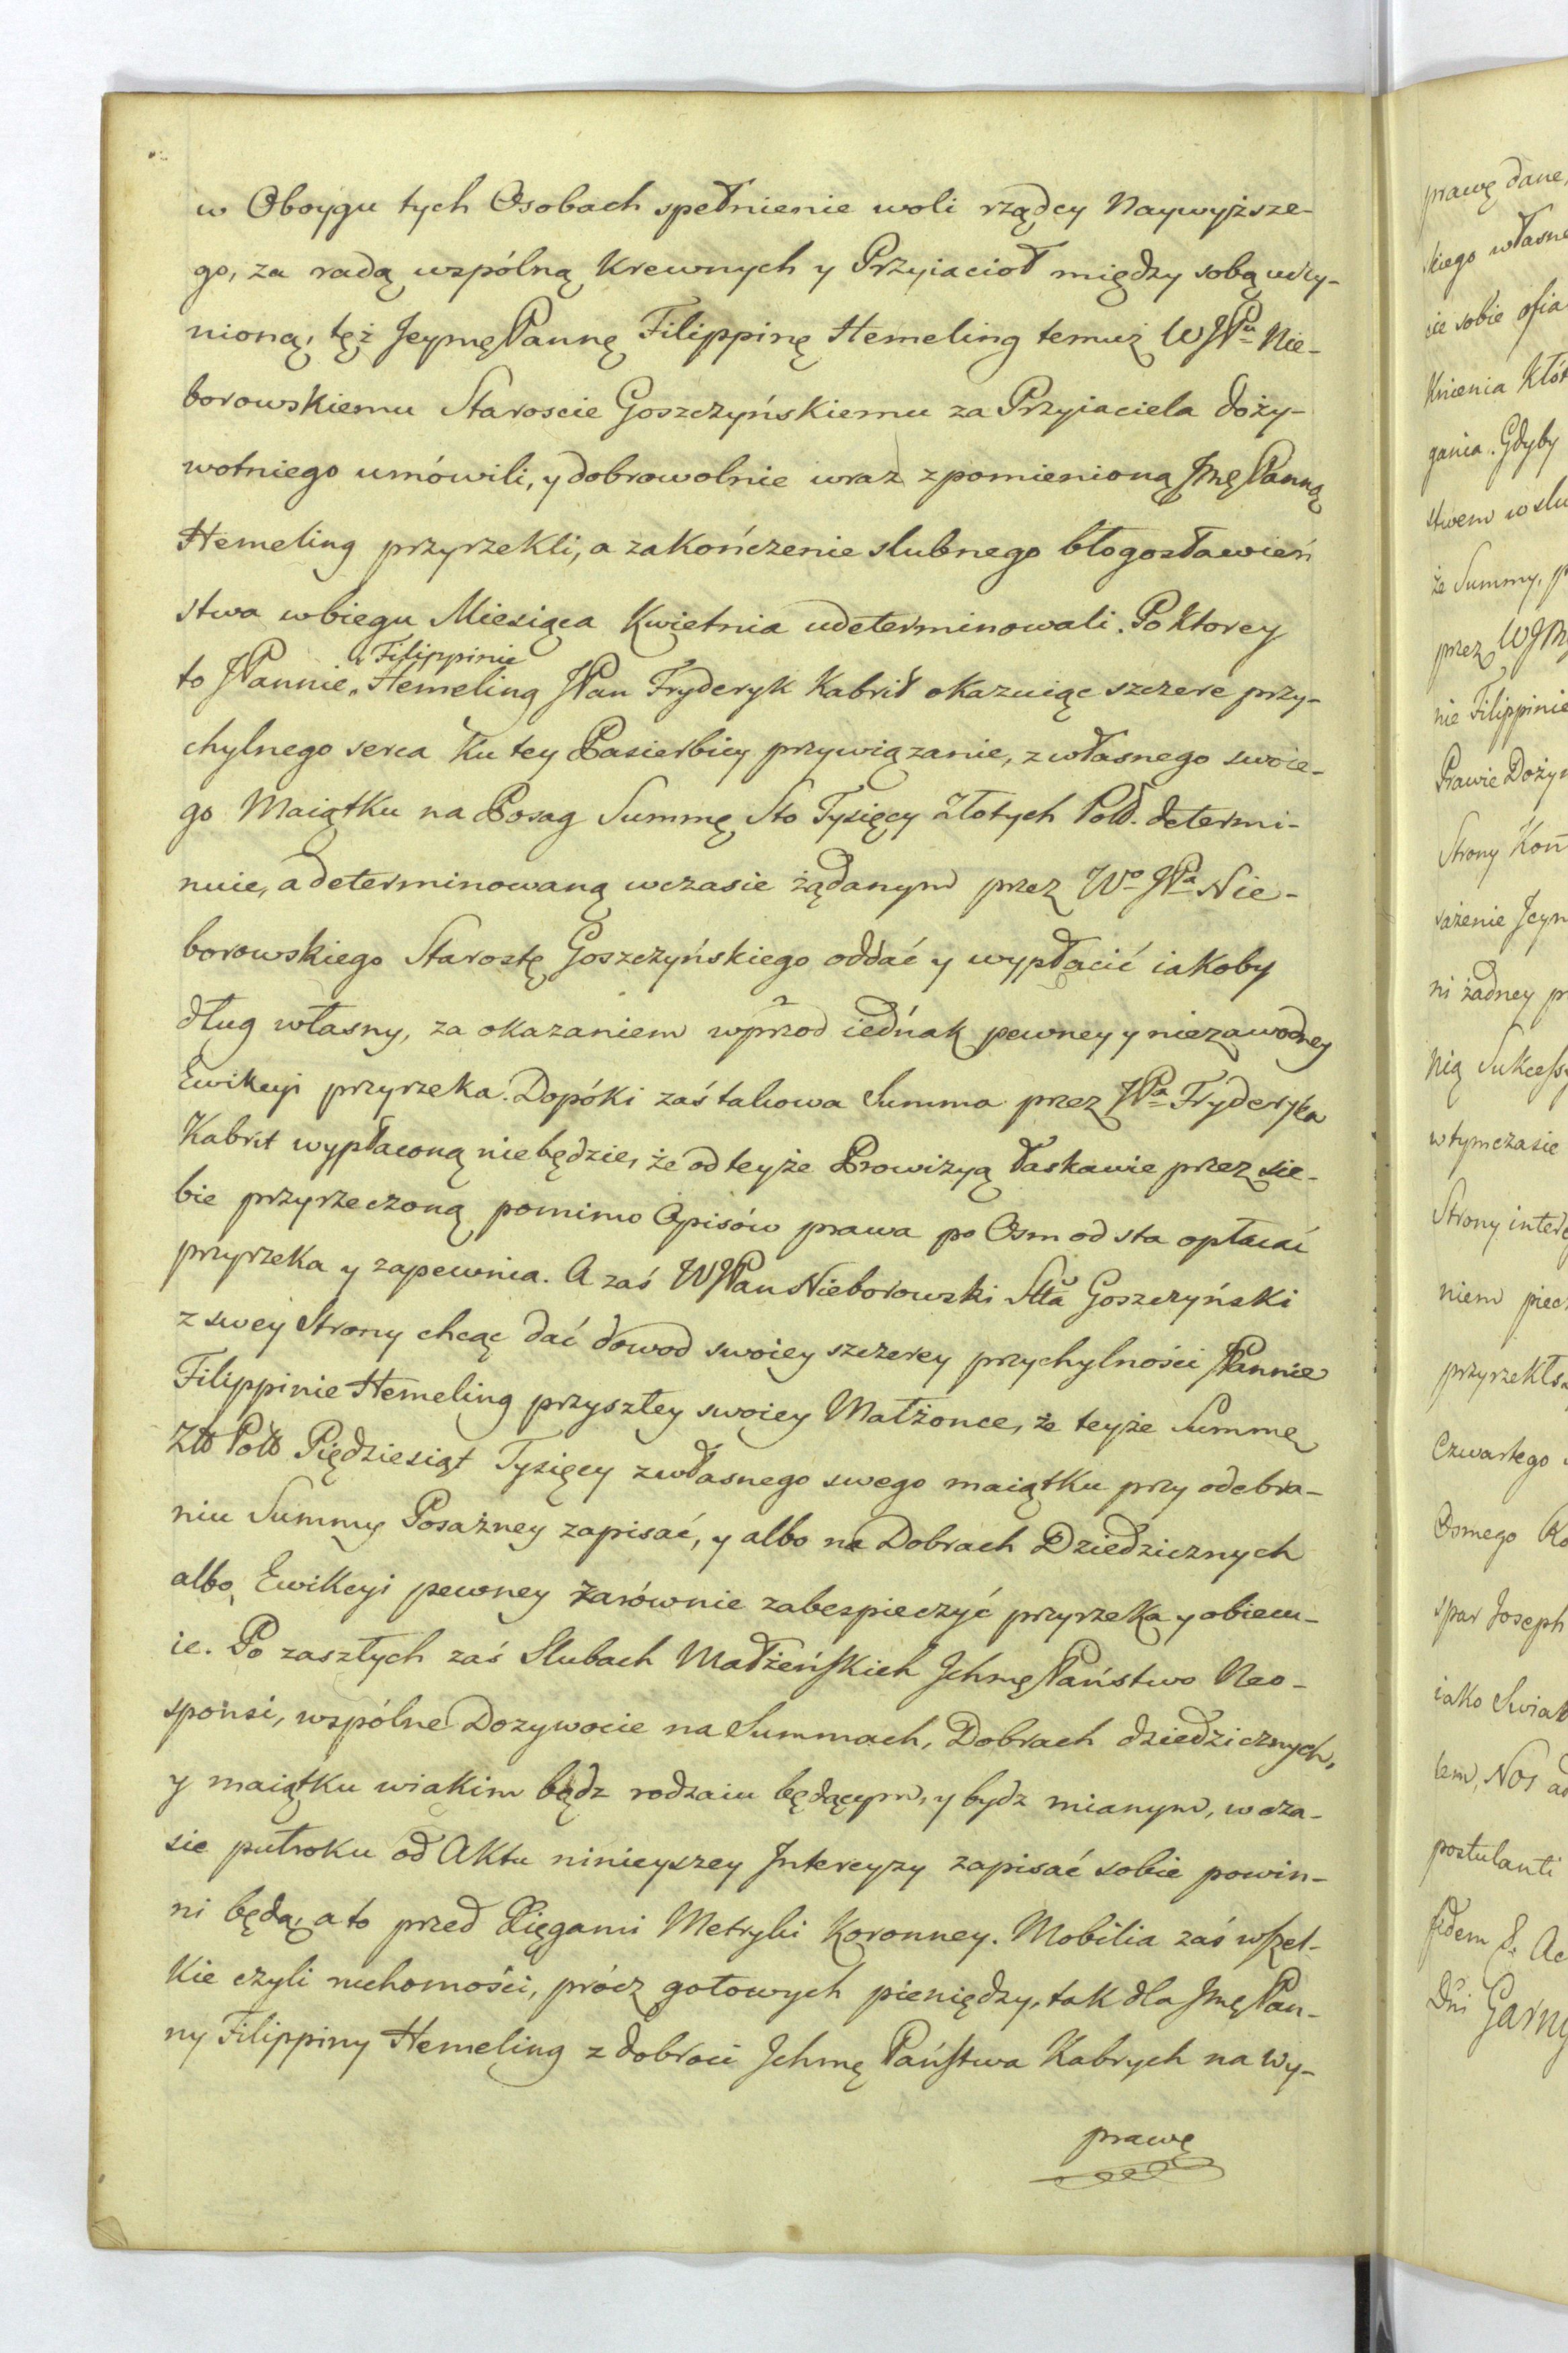 w Oboygu tych Osobach spełnienie woli rządcy Naywyższe-
go, za radą wspólną Krewnych y Przyiacioł między sobą uczy-
nioną, też Jeymę Pannę Filippinę Hemeling temuż WJPu Nie-
borowskiemu Staroscie Goszczyńskiemu za Przyiaciela doży-
wotniego umówili, y dobrowolnie wraz z pomienioną Jmę Panną
Hemeling przyrzekli, a zakończenie slubnego błogosławień
stwa w biegu Miesiąca Kwietnia udeterminowali. Po ktorey
Filippinie
to JPannie Hemeling JPan Fryderyk Kabrit okazuiąc szczere przy-
chylnego serca ku tey Pasierbicy przywiązanie, z własnego swoie-
go Maiątku na Posag Summę Sto Tysięcy Złotych Pold. determi-
nuie, a determinowaną w czasie żądanym przez Wo JPa Nie-
borowskiego Starostę Goszczyńskiego oddać y wypłacić iakoby
dług własny, za okazaniem wprzod iednak pewney y niezawodney
Ewikcyi przyrzeka. Dopóki zaś takowa Summa przez JPa Fryderyka
Kabrit wypłaconą nie będzie, że od teyże Prowizyą łaskawie przez sie-
bie przyrzeczoną pomimo Opisów prawa po Osm od sta opłacać
przyrzeka y zapewnia. A zaś WJPan Nieborowski Stta Goszczyński
z swey Strony chcąc dać dowod swoiey szczerey przychylności JPannie
Filippinie Hemeling przyszłey swoiey Małżonce, że teyże Summę
Złł Poll Pięдziesiąt Tysięcy z własnego swego maiątku przy odebra-
niu Summy Posażney zapisać, y albo na Dobrach Dziedzicznych
albo Ewikcyi pewney zarównie zabespieczyć przyrzeka y obiecu-
ie. Po zaszłych zaś Slubach Małżeńskich Ichmę Państwo Neo-
sponsi, wspólne Dozywocie na Summach, Dobrach dziedzicznych,
y maiątku w iakim bądz rodzaiu będącym, y bydz mianym, w cza-
sie pułroku od Aktu ninieyszey Intercyzy zapisać sobie powin-
ni będą, a to przed Xięgami Metryki Koronney. Mobilia zaś wszel-
kie czyli ruchomości, prócz gotowych pieniędzy, tak dla Jmę Pan-
ny Filippiny Hemeling z dobroci Ichmę Państwa Kabrych na Wy-
prawę
prawę dane,
skiego własne
ie sobie ofia
knienia Któr
gania. Gdyby
stwem w slu
że Summy, p
przez WJM
nie Filippinie
Prawie Doży
Strony Kon
sażenie Jeym
ni żadney pr
nią Sukcess
w tymczasie
Strony interc
niem piec
przyrzekłs
Czwartego
Osmego Ro
spar Joseph
iako Swiad
lem, Nos ad
postulanti
fidem & Ac
Dni Garny